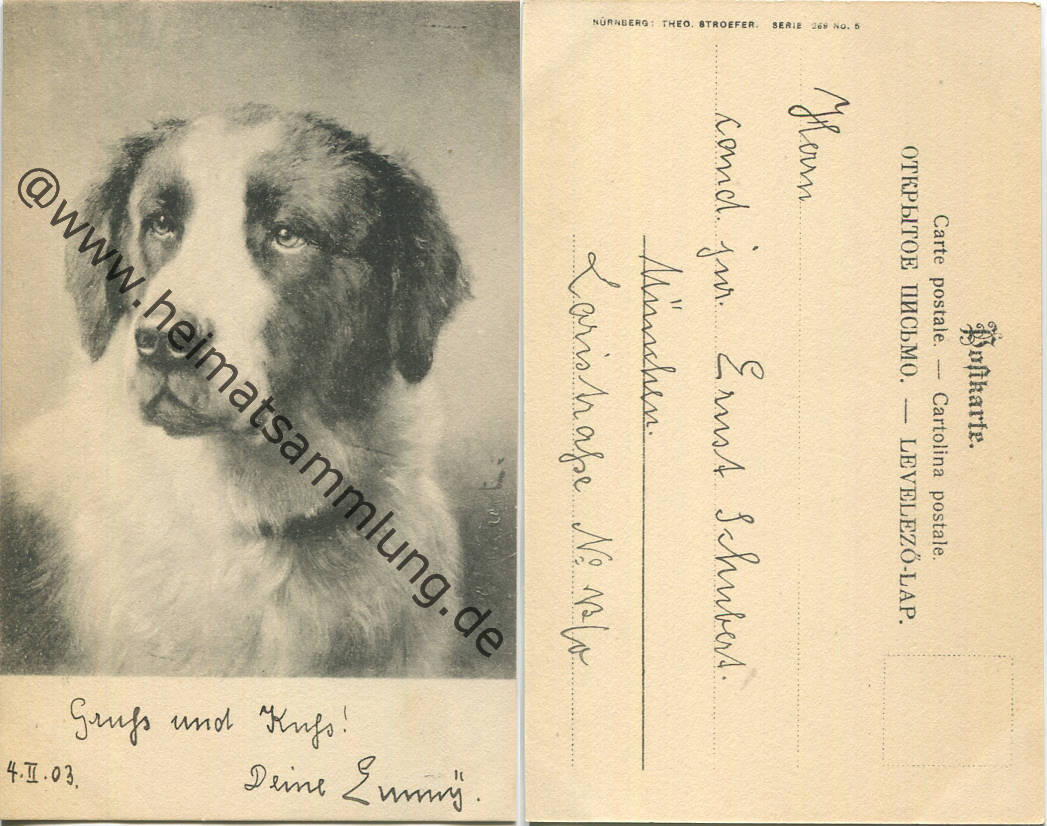 @www.heimatsammlung.de
Gruß und Kuß!
4.II.03.
Deine Emmÿ.
NÜRNBERG: THEO. STROEFER. SERIE 269 No. 5
Postkarte.
Carte postale. — Cartolina postale.
ОТКРЫТОЕ ПИСЬМО. — LEVELEZŐ-LAP.
Herrn
cand. jur. Ernst Schubert.
München.
No.